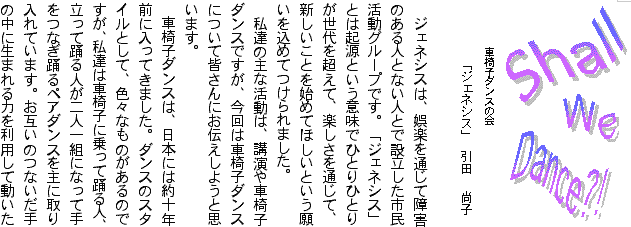 Shall
We
Dance?!!
車椅子ダンスの会
「ジェネシス」 引田 尚子
ジェネシスは、娯楽を通じて障害
のある人とない人とで設立した市民
活動グループです。「ジェネシス」
とは起源という意味でひとりひとり
が世代を超えて、楽しさを通じて、
新しいことを始めてほしいという願
いを込めてつけられました。
私達の主な活動は、講演や車椅子
ダンスですが、今回は車椅子ダンス
について皆さんにお伝えしようと思
います。
車椅子ダンスは、日本には約十年
前に入ってきました。ダンスのスタ
イルとして、色々なものがあるので
すが、私達は車椅子に乗って踊る人、
立って踊る人が二人一組になって手
をつなぎ踊るペアダンスを主に取り
入れています。お互いのつないだ手
の中に生まれる力を利用して動いた